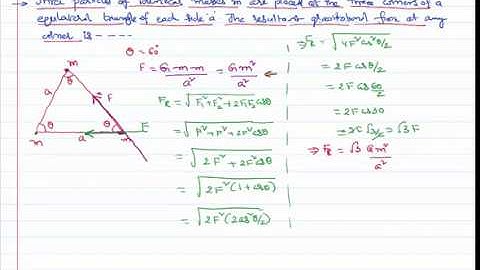 → Three particles of identical masses m are placed at the three corners of a
equilateral triangle of each side 'a'. The resultant gravitational force at any
corner is - - - -
θ = 60°
F = G·m·m/a² = Gm²/a² ←
F_R = √F₁²+F₂²+2F₁F₂cosθ
= √F²+F²+2F²cosθ
= √2F²+2F²cosθ
= √2F²(1+cosθ)
= √2F²(2cos²θ/2)
m
θ
a
F
θ
θ
F
m
a
m
⇒ F_R = √4F²cos²θ/2
= 2F cosθ/2
= 2F cos60/2
= 2F cos30
= 2F √3/2 = √3F
⇒ F_R = √3 Gm²/a²